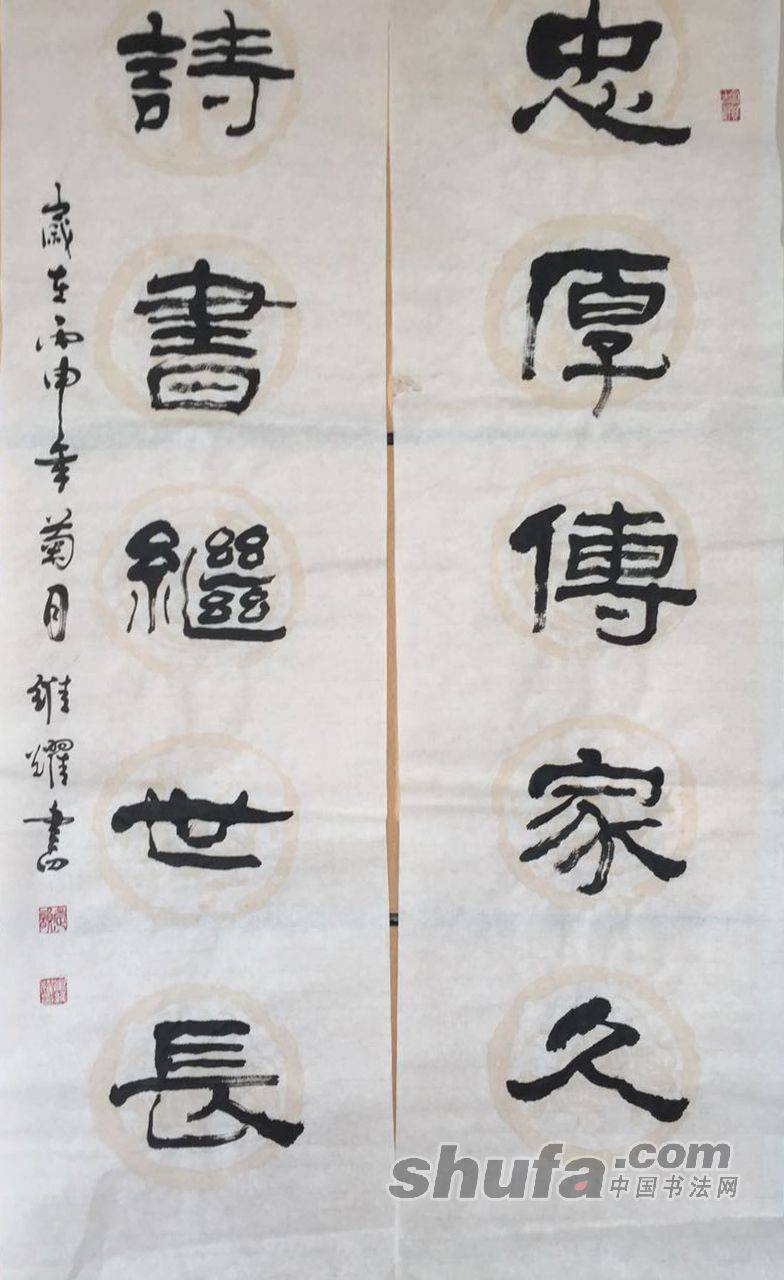 忠厚傳家久
詩書繼世長
歲在丙申年菊月維耀書
shufa.com
中国书法网